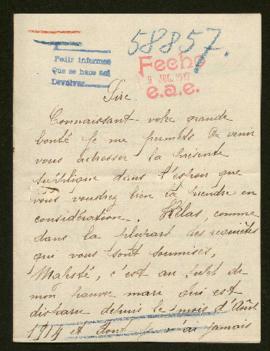 58857.
Pedir informes
Que se hace así
Devolver
Fecho
JUL. 1917
e.a.e.
Sire
Connaissant votre grande
bonté je me permets de venir
vous adresser la présente
supplique dans l'espoir que
vous voudrez bien la prendre en
considération. Hélas, comme
dans la plupart des requêtes
qui vous sont soumises,
Majesté, c'est au sujet de
mon pauvre mari qui est
disparu depuis le mois d'Août
1914 et dont je n'ai jamais